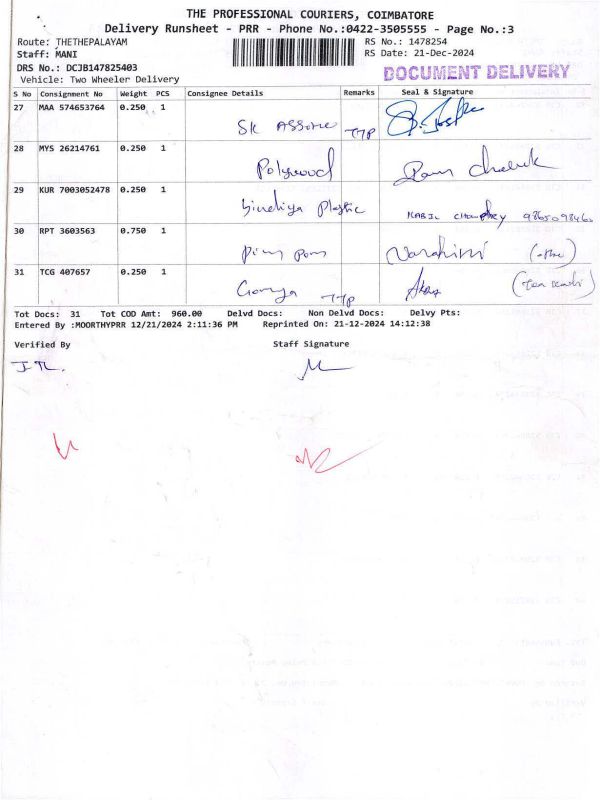 THE PROFESSIONAL COURIERS, COIMBATORE
Delivery Runsheet - PRR - Phone No.:0422-3505555 - Page No.:3
Route: THETHEPALAYAM RS No.: 1478254
Staff: MANI RS Date: 21-Dec-2024
DRS No.: DCJB147825403 DOCUMENT DELIVERY
Vehicle: Two Wheeler Delivery
S No Consignment No Weight PCS Consignee Details Remarks Seal & Signature
27 MAA 574653764 0.250 1
SK Assome TTP
28 MYS 26214761 0.250 1
Polywood
29 KUR 7003052478 0.250 1
Plastic KABIL
30 RPT 3603563 0.750 1
Varahini
31 TCG 407657 0.250 1
TTP
Tot Docs: 31 Tot COD Amt: 960.00 Delvd Docs: Non Delvd Docs: Delvy Pts:
Entered By :MOORTHYPRR 12/21/2024 2:11:36 PM Reprinted On: 21-12-2024 14:12:38
Verified By Staff Signature